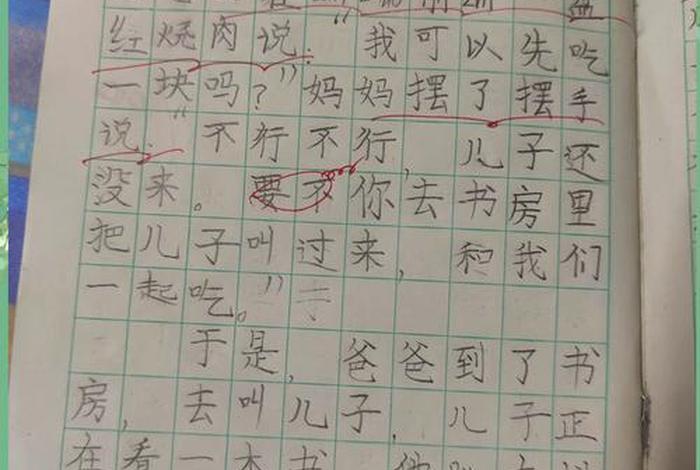 盆
红烧肉说:“我可以先吃
一块吗?”妈妈摆了摆手
说:“不行不行,儿子还
没来。要不你去书房里
把儿子叫过来,和我们
一起吃。”
于是,爸爸到了书
房,去叫儿子,儿子正
在看一本书。